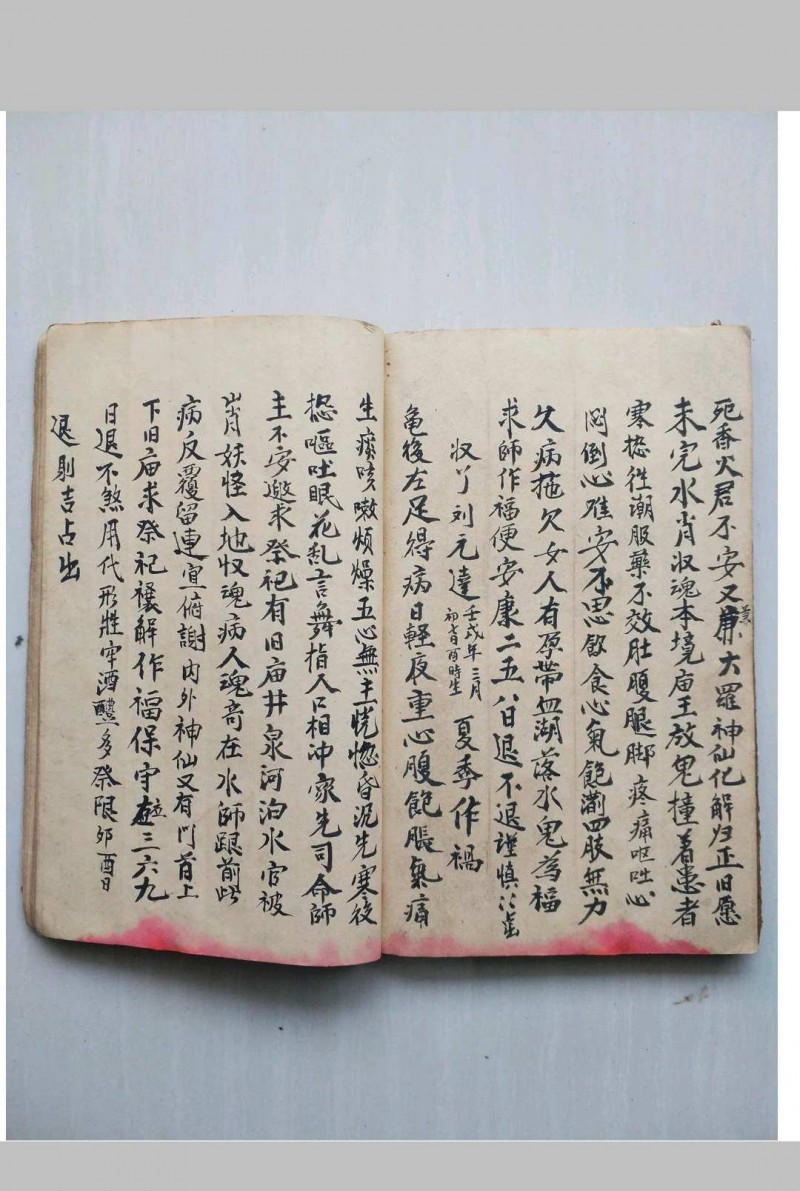 死香火君不安又用犬羅神仙化解归正旧愿
未完水肖収魂本境庙王放鬼撞着患者
寒热往潮服藥不效肚腹腿脚疼痛呕吐心
闷倒心难安不思飲食心氣飽滿四肢無力
久病拖欠女人有孕带血湖落水鬼為禍
求師作福便安康二五八日退不退謹慎
収丫刘元達 壬戌年三月 初 酉時生 夏季作禍
亀後左足得病日軽夜重心腹飽脹氣痛
生痰咳嗽煩燥五心無主恍惚昏沉先寒後
热嘔吐眼花乱言舞指人口相冲家先司命師
主不安邀求祭祀有旧庙井泉河泊水官被
山肖妖怪入地収魂病人魂竒在水師跟前此
病反覆留連宜俯謝内外神仙又有门首上
下旧庙求祭祀禳解作福保守 三六九
日退不煞用代形牲牢酒醴多祭限卯酉日
退則吉占出